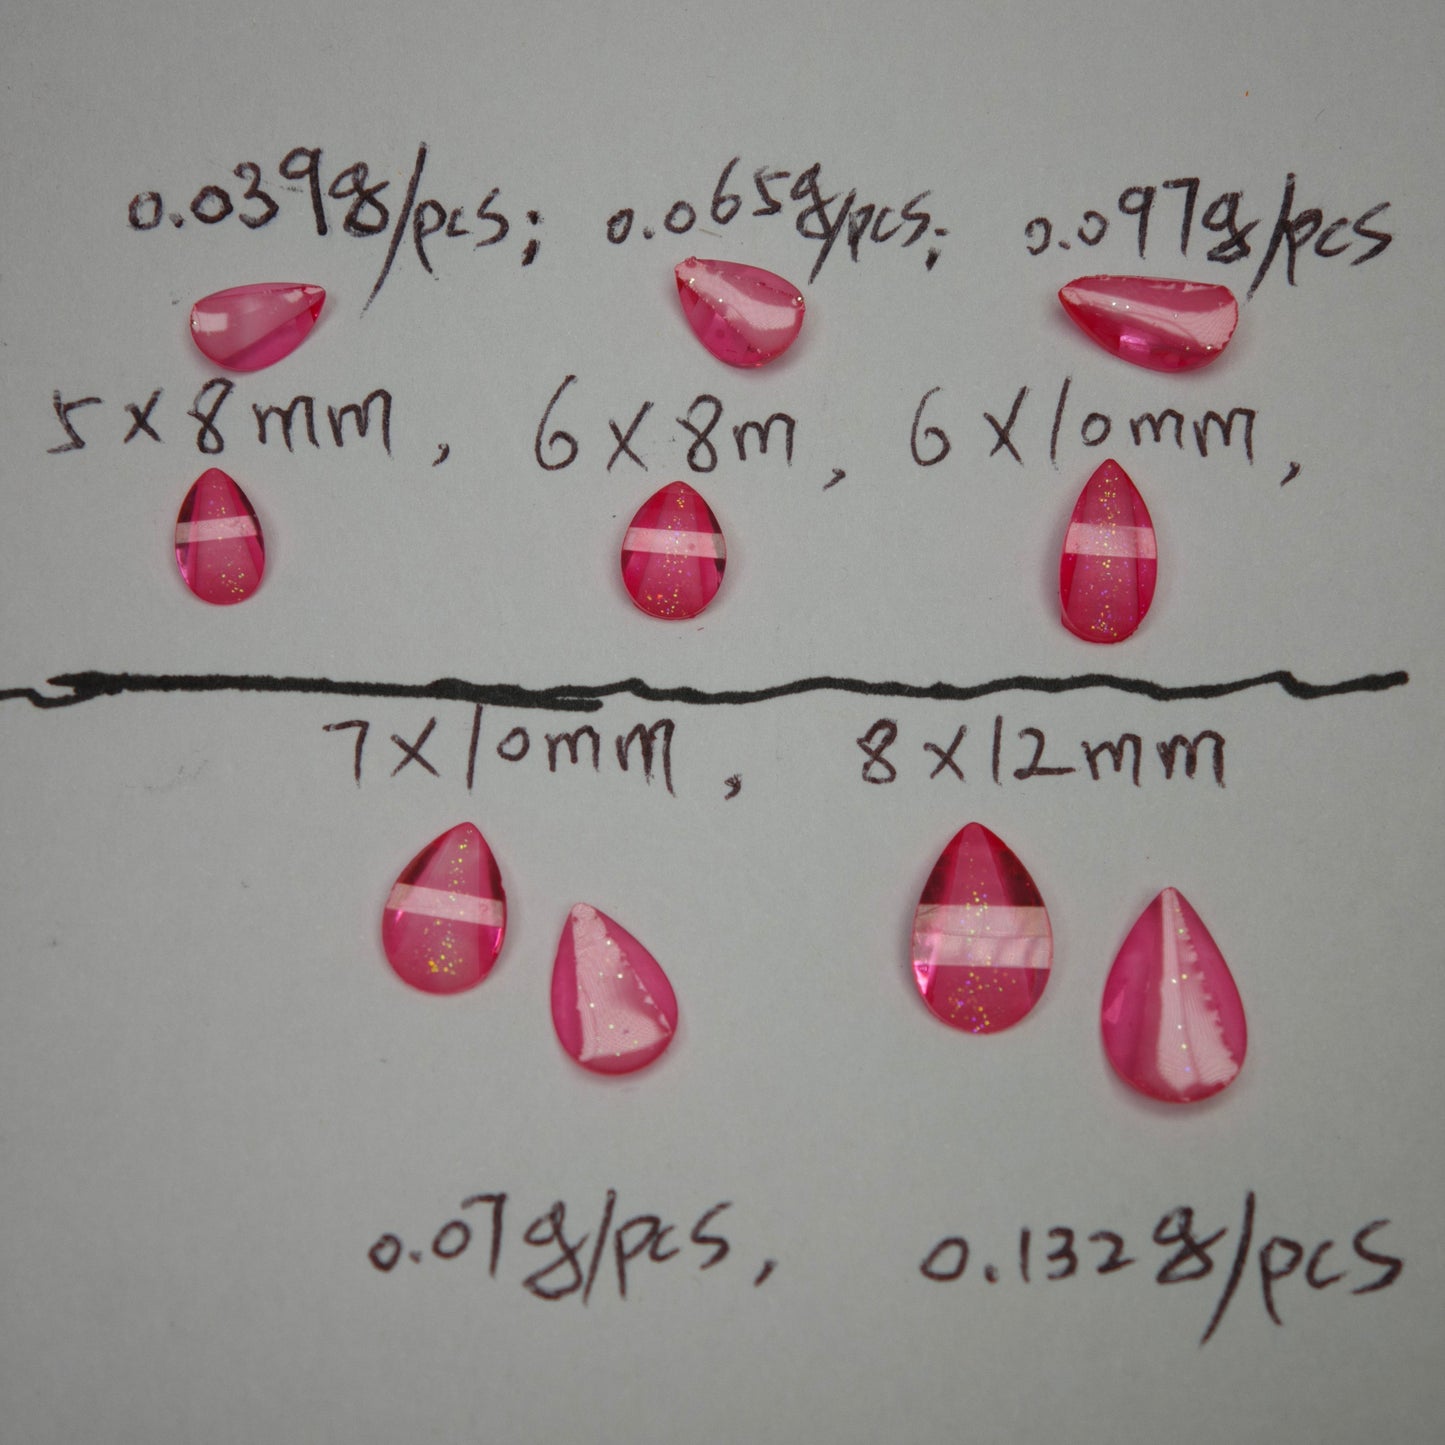 0.039g/pcs; 0.065g/pcs; 0.097g/pcs
5 x 8mm, 6 x 8m, 6 x 10mm,
7 x 10mm, 8 x 12mm
0.07g/pcs, 0.132g/pcs